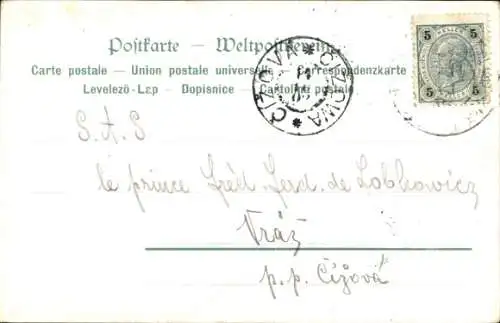 Postkarte – Weltpostverein
Carte postale – Union postale universelle – Correspondenzkarte
Levelező-Lap – Dopisnice – Cartolina postale
ČÍŽOVÁ * ČIZOWA *
5 5
5 5
S. A. S
le prince Fréd. Ferd. de Lobkowicz
Vráž
p. p. Čížová